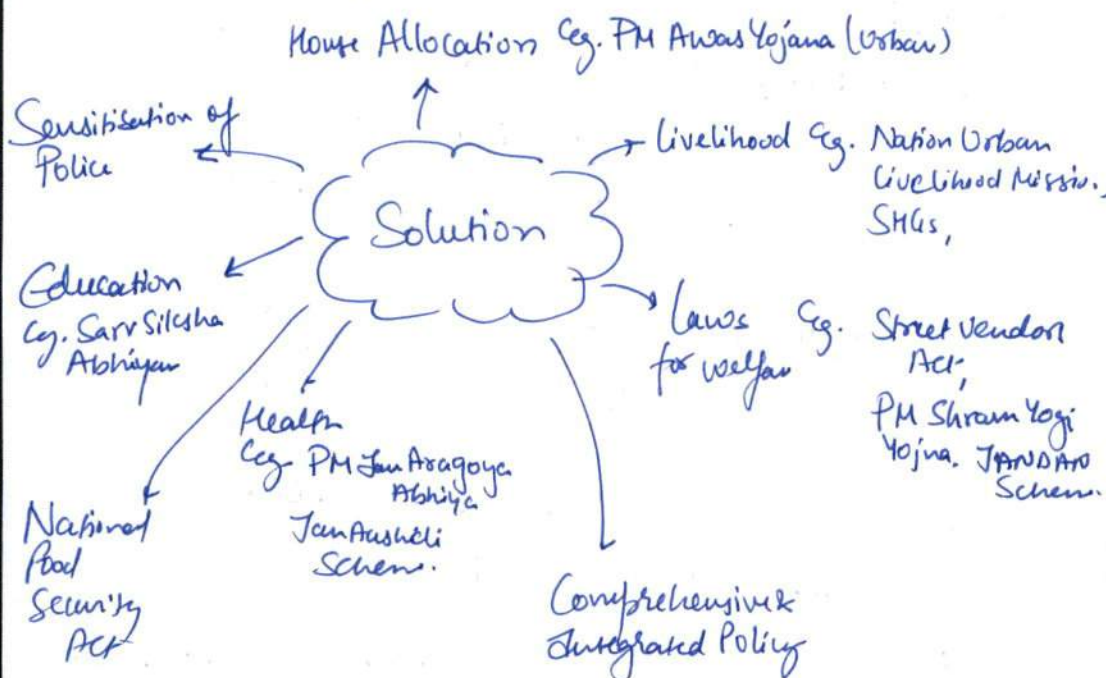 House Allocation eg. PM Awas Yojana (Urban)
Sensitisation of
Police
Livelihood eg. Nation Urban
Livelihood Missio.,
SHGs,
Solution
Education
eg. Sarv Siksha
Abhiyan
Laws eg. Street Vendors
for welfare Act,
PM Shram Yogi
Yojna. JANDAN
Scheme.
Health
eg. PM Jan Aragoya
Abhiya
Jan Aushdi
Scheme.
National
Food
Security
Act
Comprehensive &
Integrated Policy